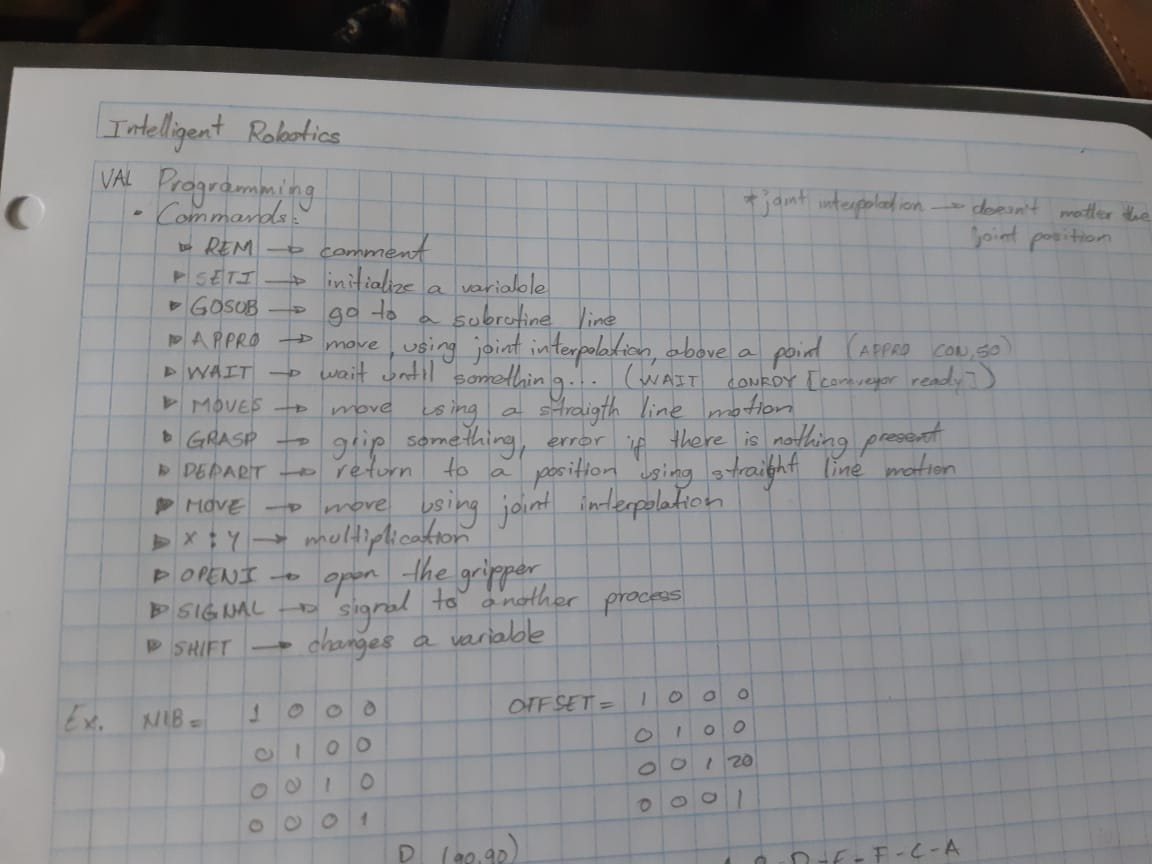 Intelligent Robotics
VAL Programming
• Commands:
*joint interpolation → doesn't matter the
joint position
▸ REM → comment
▸ SETI → initialize a variable
▸ GOSUB → go to a subrutine line
▸ APPRO → move, using joint interpolation, above a point (APPRO CON,50)
▸ WAIT → wait until something... (WAIT CONRDY [conveyor ready])
▸ MOVES → move using a straigth line motion
▸ GRASP → grip something, error if there is nothing present
▸ DEPART → return to a position using straight line motion
▸ MOVE → move using joint interpolation
▸ X : Y → multiplication
▸ OPENI → open the gripper
▸ SIGNAL → signal to another process
▸ SHIFT → changes a variable
Ex. NIB = 1 0 0 0
0 1 0 0
0 0 1 0
0 0 0 1
OFFSET = 1 0 0 0
0 1 0 0
0 0 1 20
0 0 0 1
D (90,90)
D-E-F-C-A